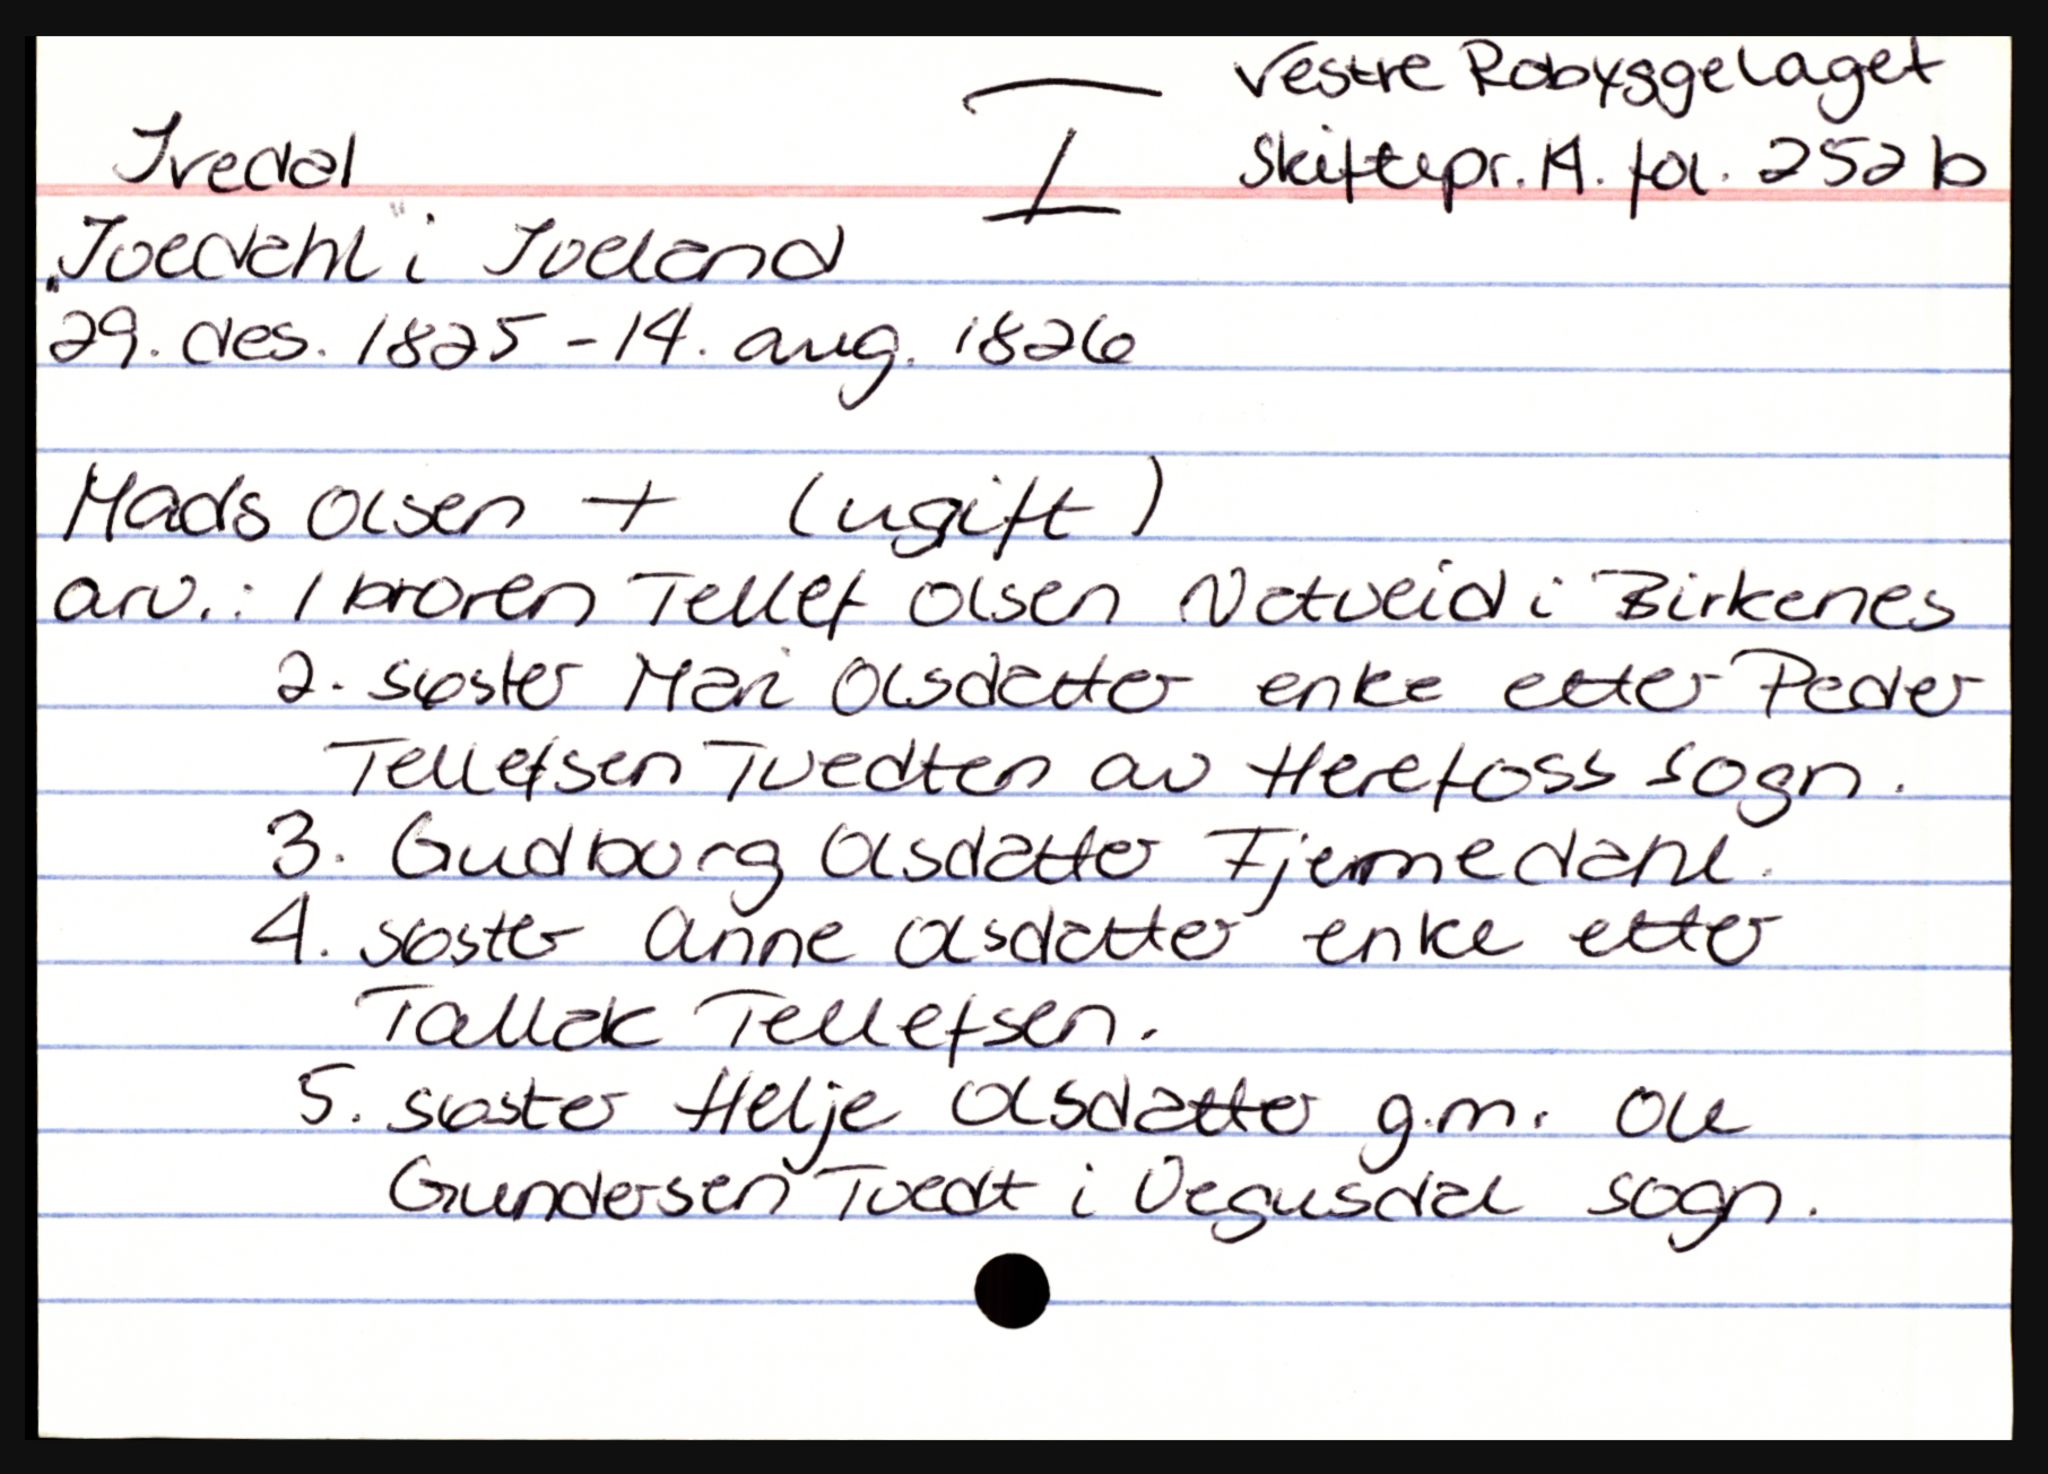 Vestre Robyggelaget
I
Ivedal
Skiftepr. 14. fol. 252 b
"Ivedahl" i Iveland
29. des. 1825 - 14. aug. 1826
Mads Olsen + (ugift)
arv.: 1 broren Tellef Olsen Natveid i Birkenes
2. søster Mari Olsdatter enke etter Peder
Tellefsen Tvedten av Herefoss sogn.
3. Gudborg Olsdatter Fjermedahl.
4. søster Anne Olsdatter enke etter
Tallak Tellefsen.
5. søster Helje Olsdatter g.m. Ole
Gundersen Tvedt i Vegusdal sogn.